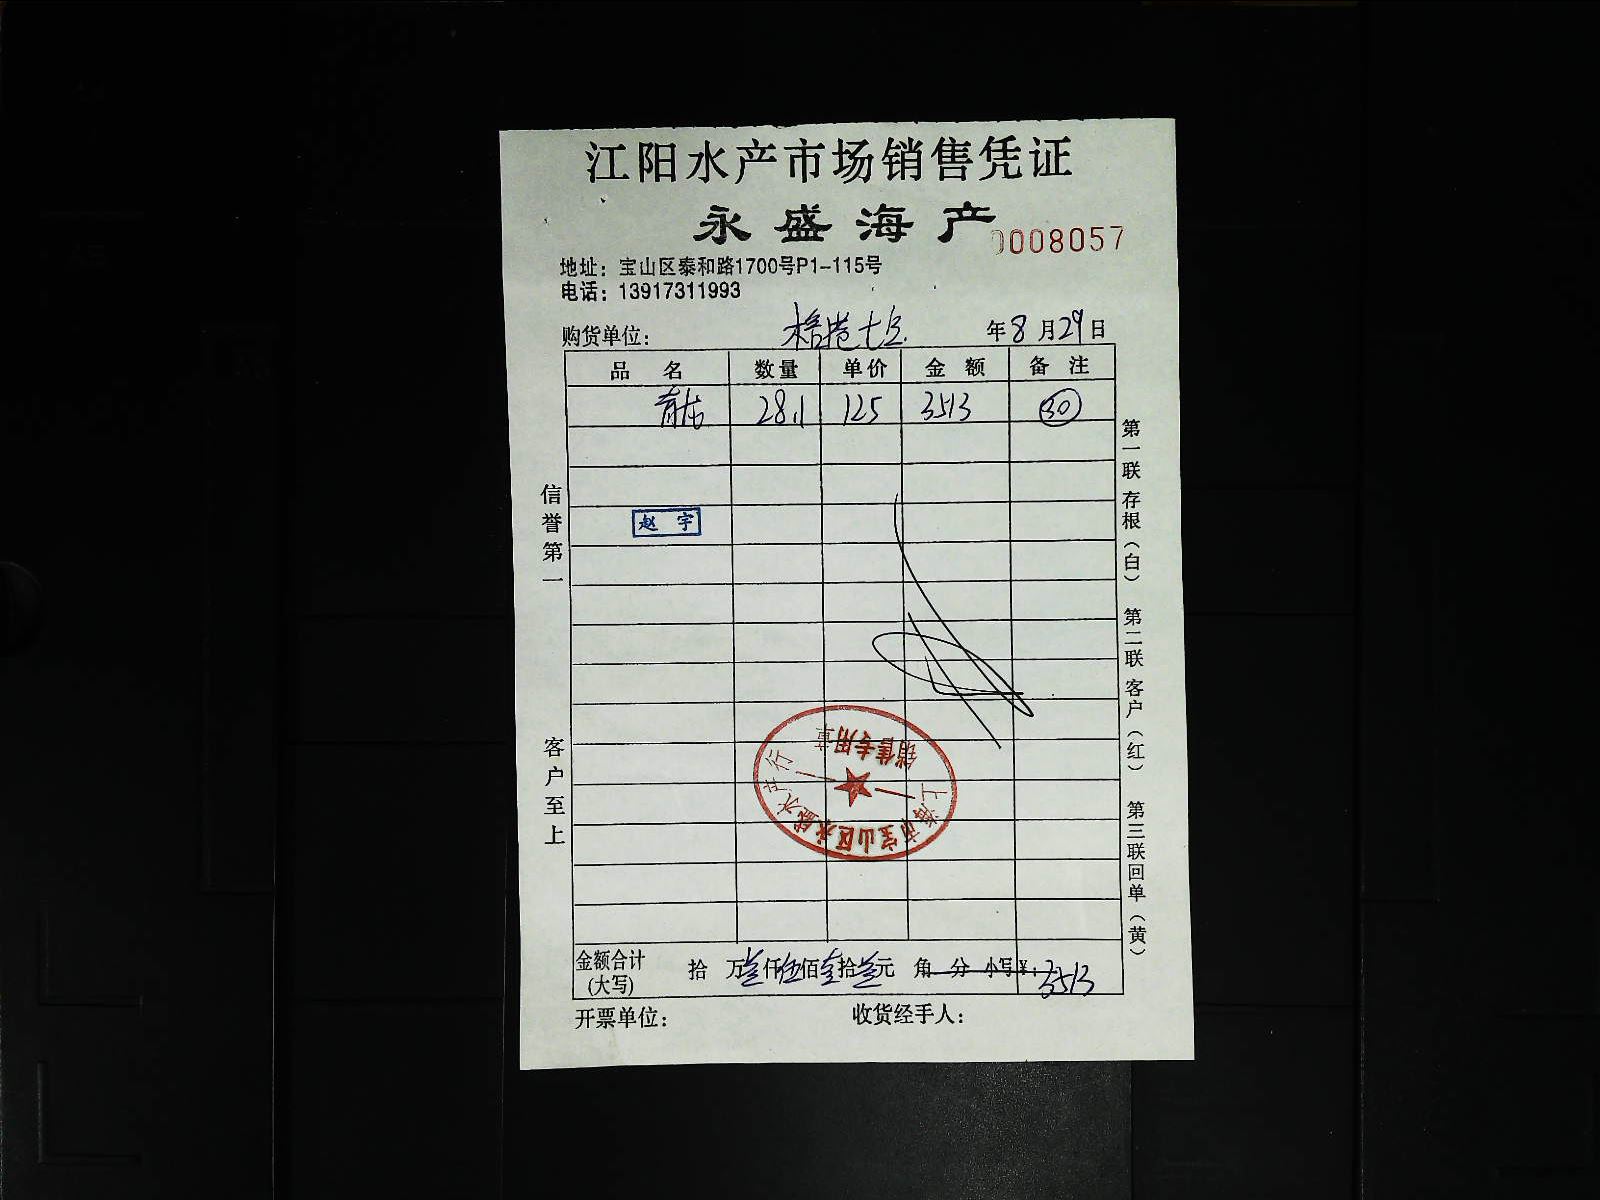 江阳水产市场销售凭证
永盛海产
0008057
地址：宝山区泰和路1700号P1-115号
电话：13917311993
购货单位： 年8月29日
品 名 数量 单价 金 额 备 注
青龙 28.1 125 3513 30
赵 宇
信誉第一
客户至上
第一联 存根（白） 第二联 客户（红） 第三联 回单（黄）
上海市宝山区永盛水产行
销售专用章
金额合计 拾 万叁仟伍佰壹拾叁元 角 分 小写¥：3513
(大写)
开票单位： 收货经手人：